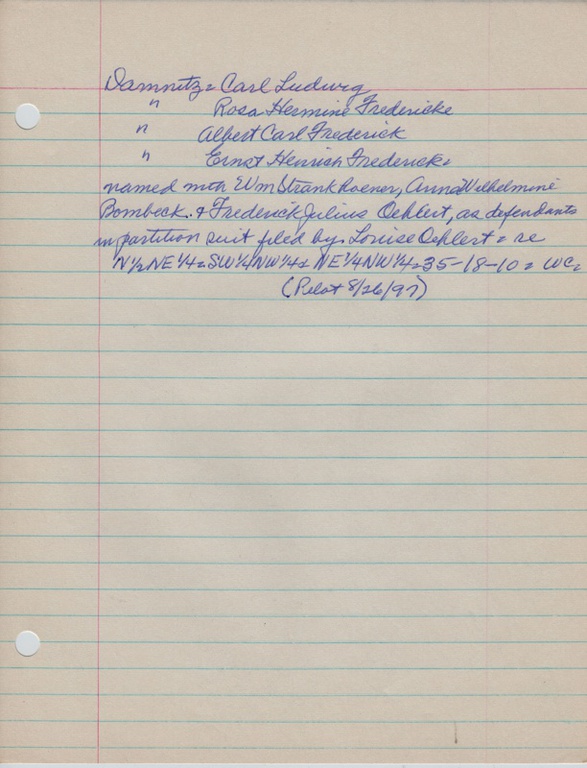 Damnitz = Carl Ludwig
" Rosa Hermine Fredericke
" Albert Carl Frederick
" Ernst Henrich Frederick.
named with Wm Strankhoener, Anna Wilhelmine
Bombeck. & Frederick Julius Oehlert, as defendants
in partition suit filed by Louise Oehlert = re
N½ NE ¼ = SW ¼ NW ¼ & NE ¼ NW ¼ = 35-18-10 = WC.
(Pilot 8/26/97)